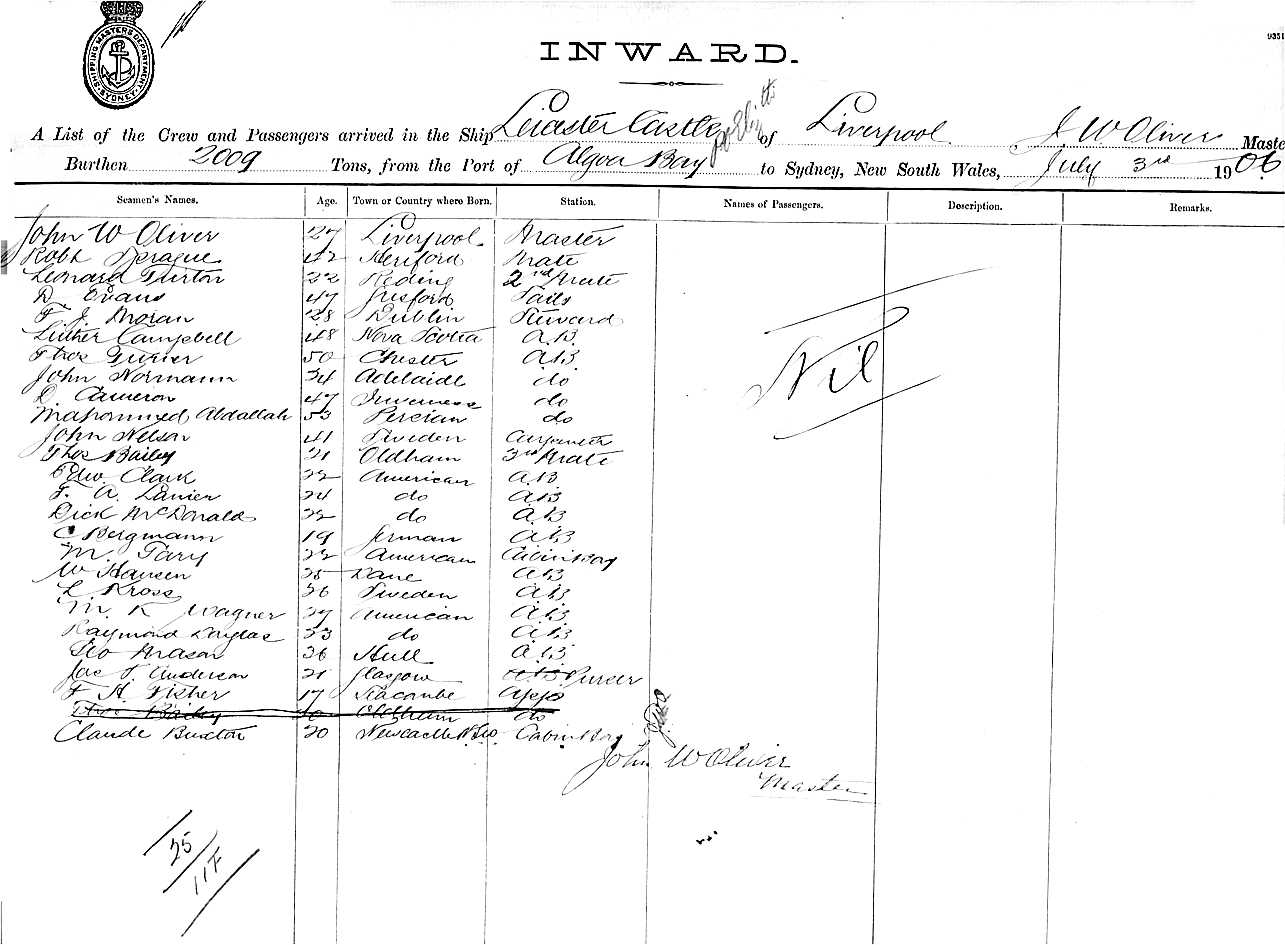 SHIPPING MASTERS DEPARTMENT SYDNEY
9351
INWARD.
A List of the Crew and Passengers arrived in the Ship Leicester Castle of Liverpool J W Oliver Maste
Burthen 2009 Tons, from the Port of Algoa Bay to Sydney, New South Wales, July 3rd 1906
Seamen's Names. Age. Town or Country where Born. Station. Names of Passengers. Description. Remarks.
John W Oliver 27 Liverpool Master
Robt Sprague 42 Hereford Mate
Leonard Turton 22 Reding 2nd Mate
D. Evans 47 Gresford Sails
F. J. Moran 28 Dublin Steward
Luther Campbell 48 Nova Scotia A.B.
Thos Turner 50 Chester A.B
John Normann 34 Adelaide do
D. Cameron 47 Inverness do
Mahommed Abdallah 53 Percian do
John Nelson 41 Sweden Carpenter
Thos Bailey 21 Oldham 3rd Mate
Edw. Clark 22 American A.B
F. A. Lanier 24 do A.B
Dick McDonald 22 do A.B
C Bergmann 19 German A.B
M. Tary 22 American Cabin Boy
W Hansen 25 Dane A.B
L Kross 26 Sweden A.B
M. K Wagner 27 American A.B
Raymond Douglas 23 do A.B
Geo Mason 36 Hull A.B
Jas T. Anderson 21 Glasgow A.B Purser
F H Fisher 17 Seacombe App
Thos Bailey 20 Oldham do
Claude Buxton 20 Newcastle Cabin Boy
Nil
John W Oliver
Master
25
117